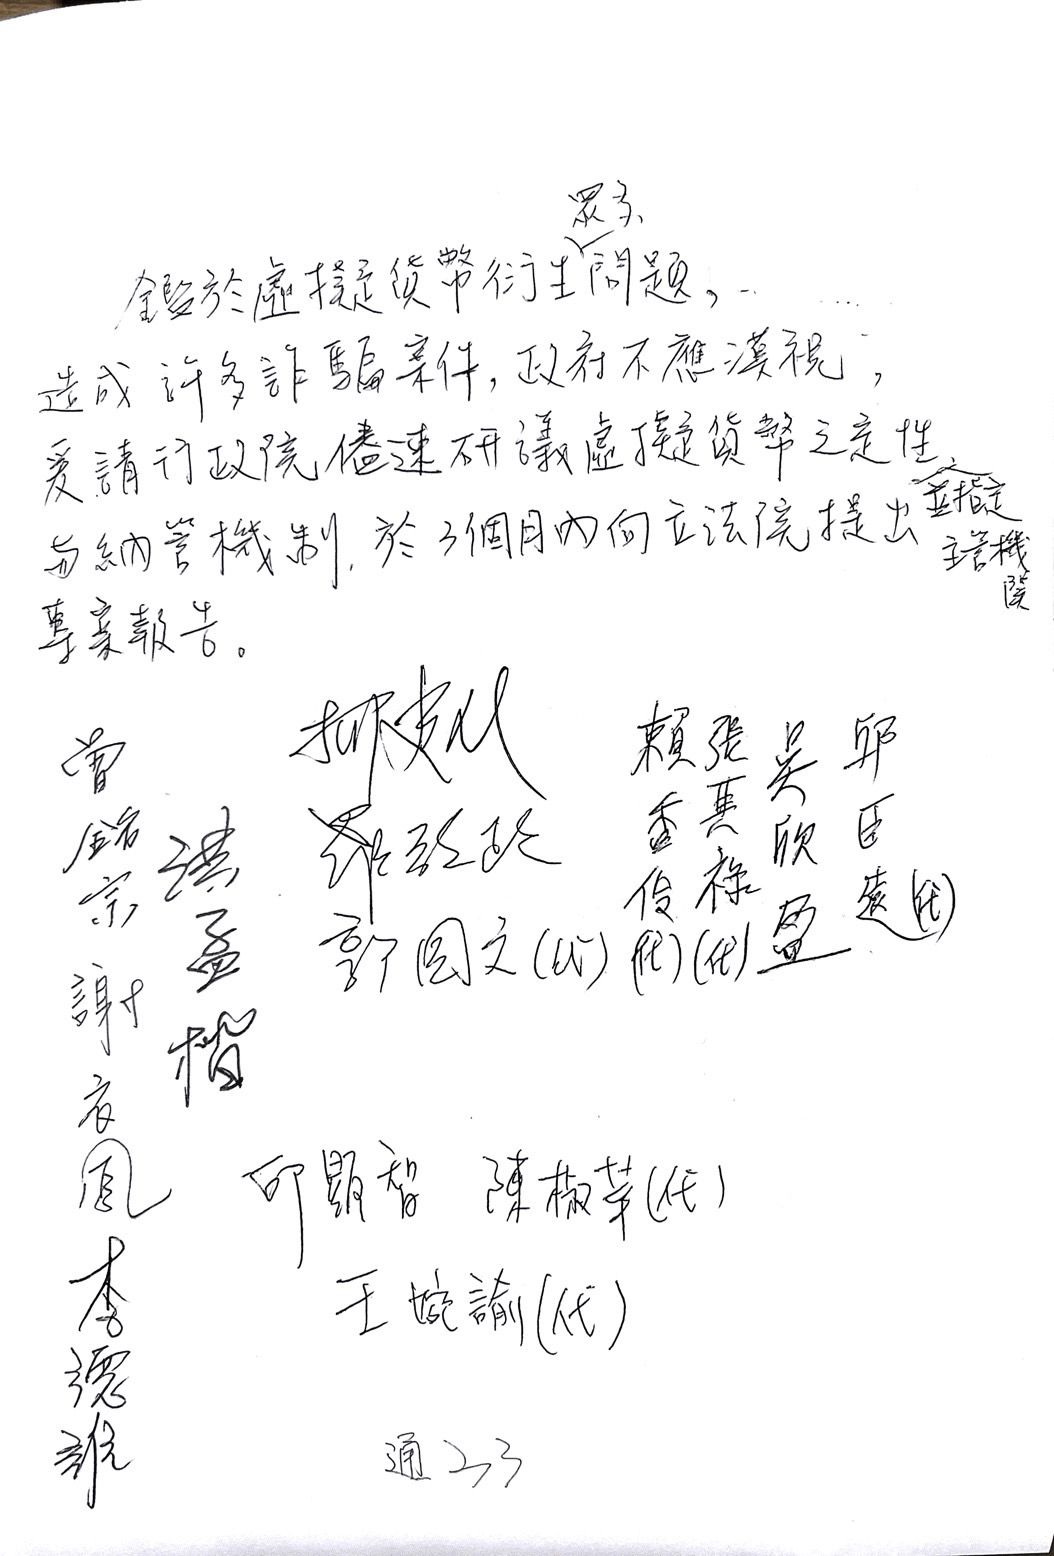 眾多
鑑於虛擬貨幣衍生問題，
造成許多詐騙案件，政府不應漠視，
爰請行政院儘速研議虛擬貨幣之定性、
並指定
主管機
關
與納管機制，於3個月內向立法院提出
專案報告。
曾銘宗
謝衣鳳
李德維
洪孟楷
羅致政
郭國文(代)
賴香伶(代)
張其祿(代)
吳欣盈
邱臣遠(代)
邱顯智 陳椒華(代)
王婉諭(代)
通223